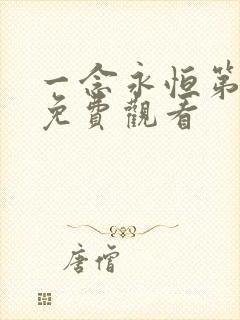 一念永恒第
免費觀看
唐僧